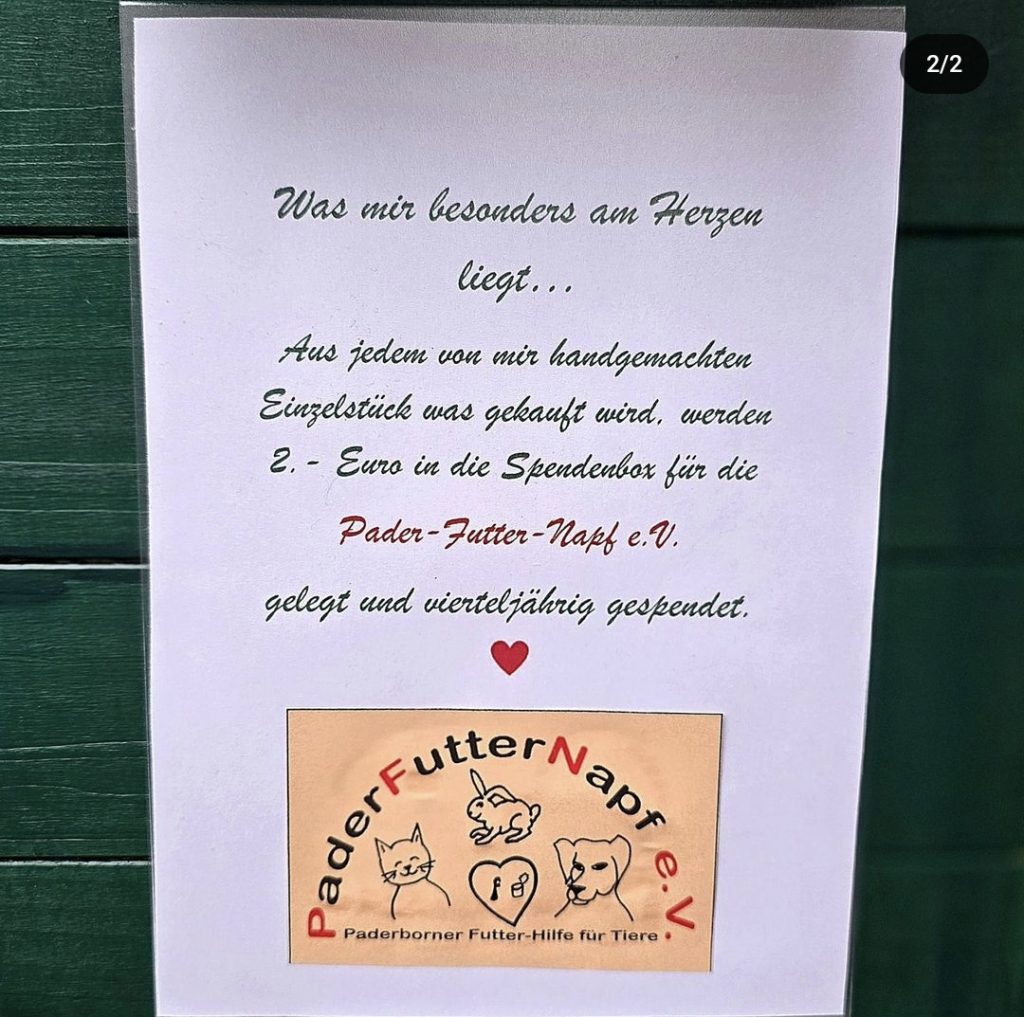 2/2
Was mir besonders am Herzen
liegt...
Aus jedem von mir handgemachten
Einzelstück was gekauft wird, werden
2.- Euro in die Spendenbox für die
Pader-Futter-Napf e.V.
gelegt und vierteljährig gespendet.
PaderFutterNapf e.V.
Paderborner Futter-Hilfe für Tiere